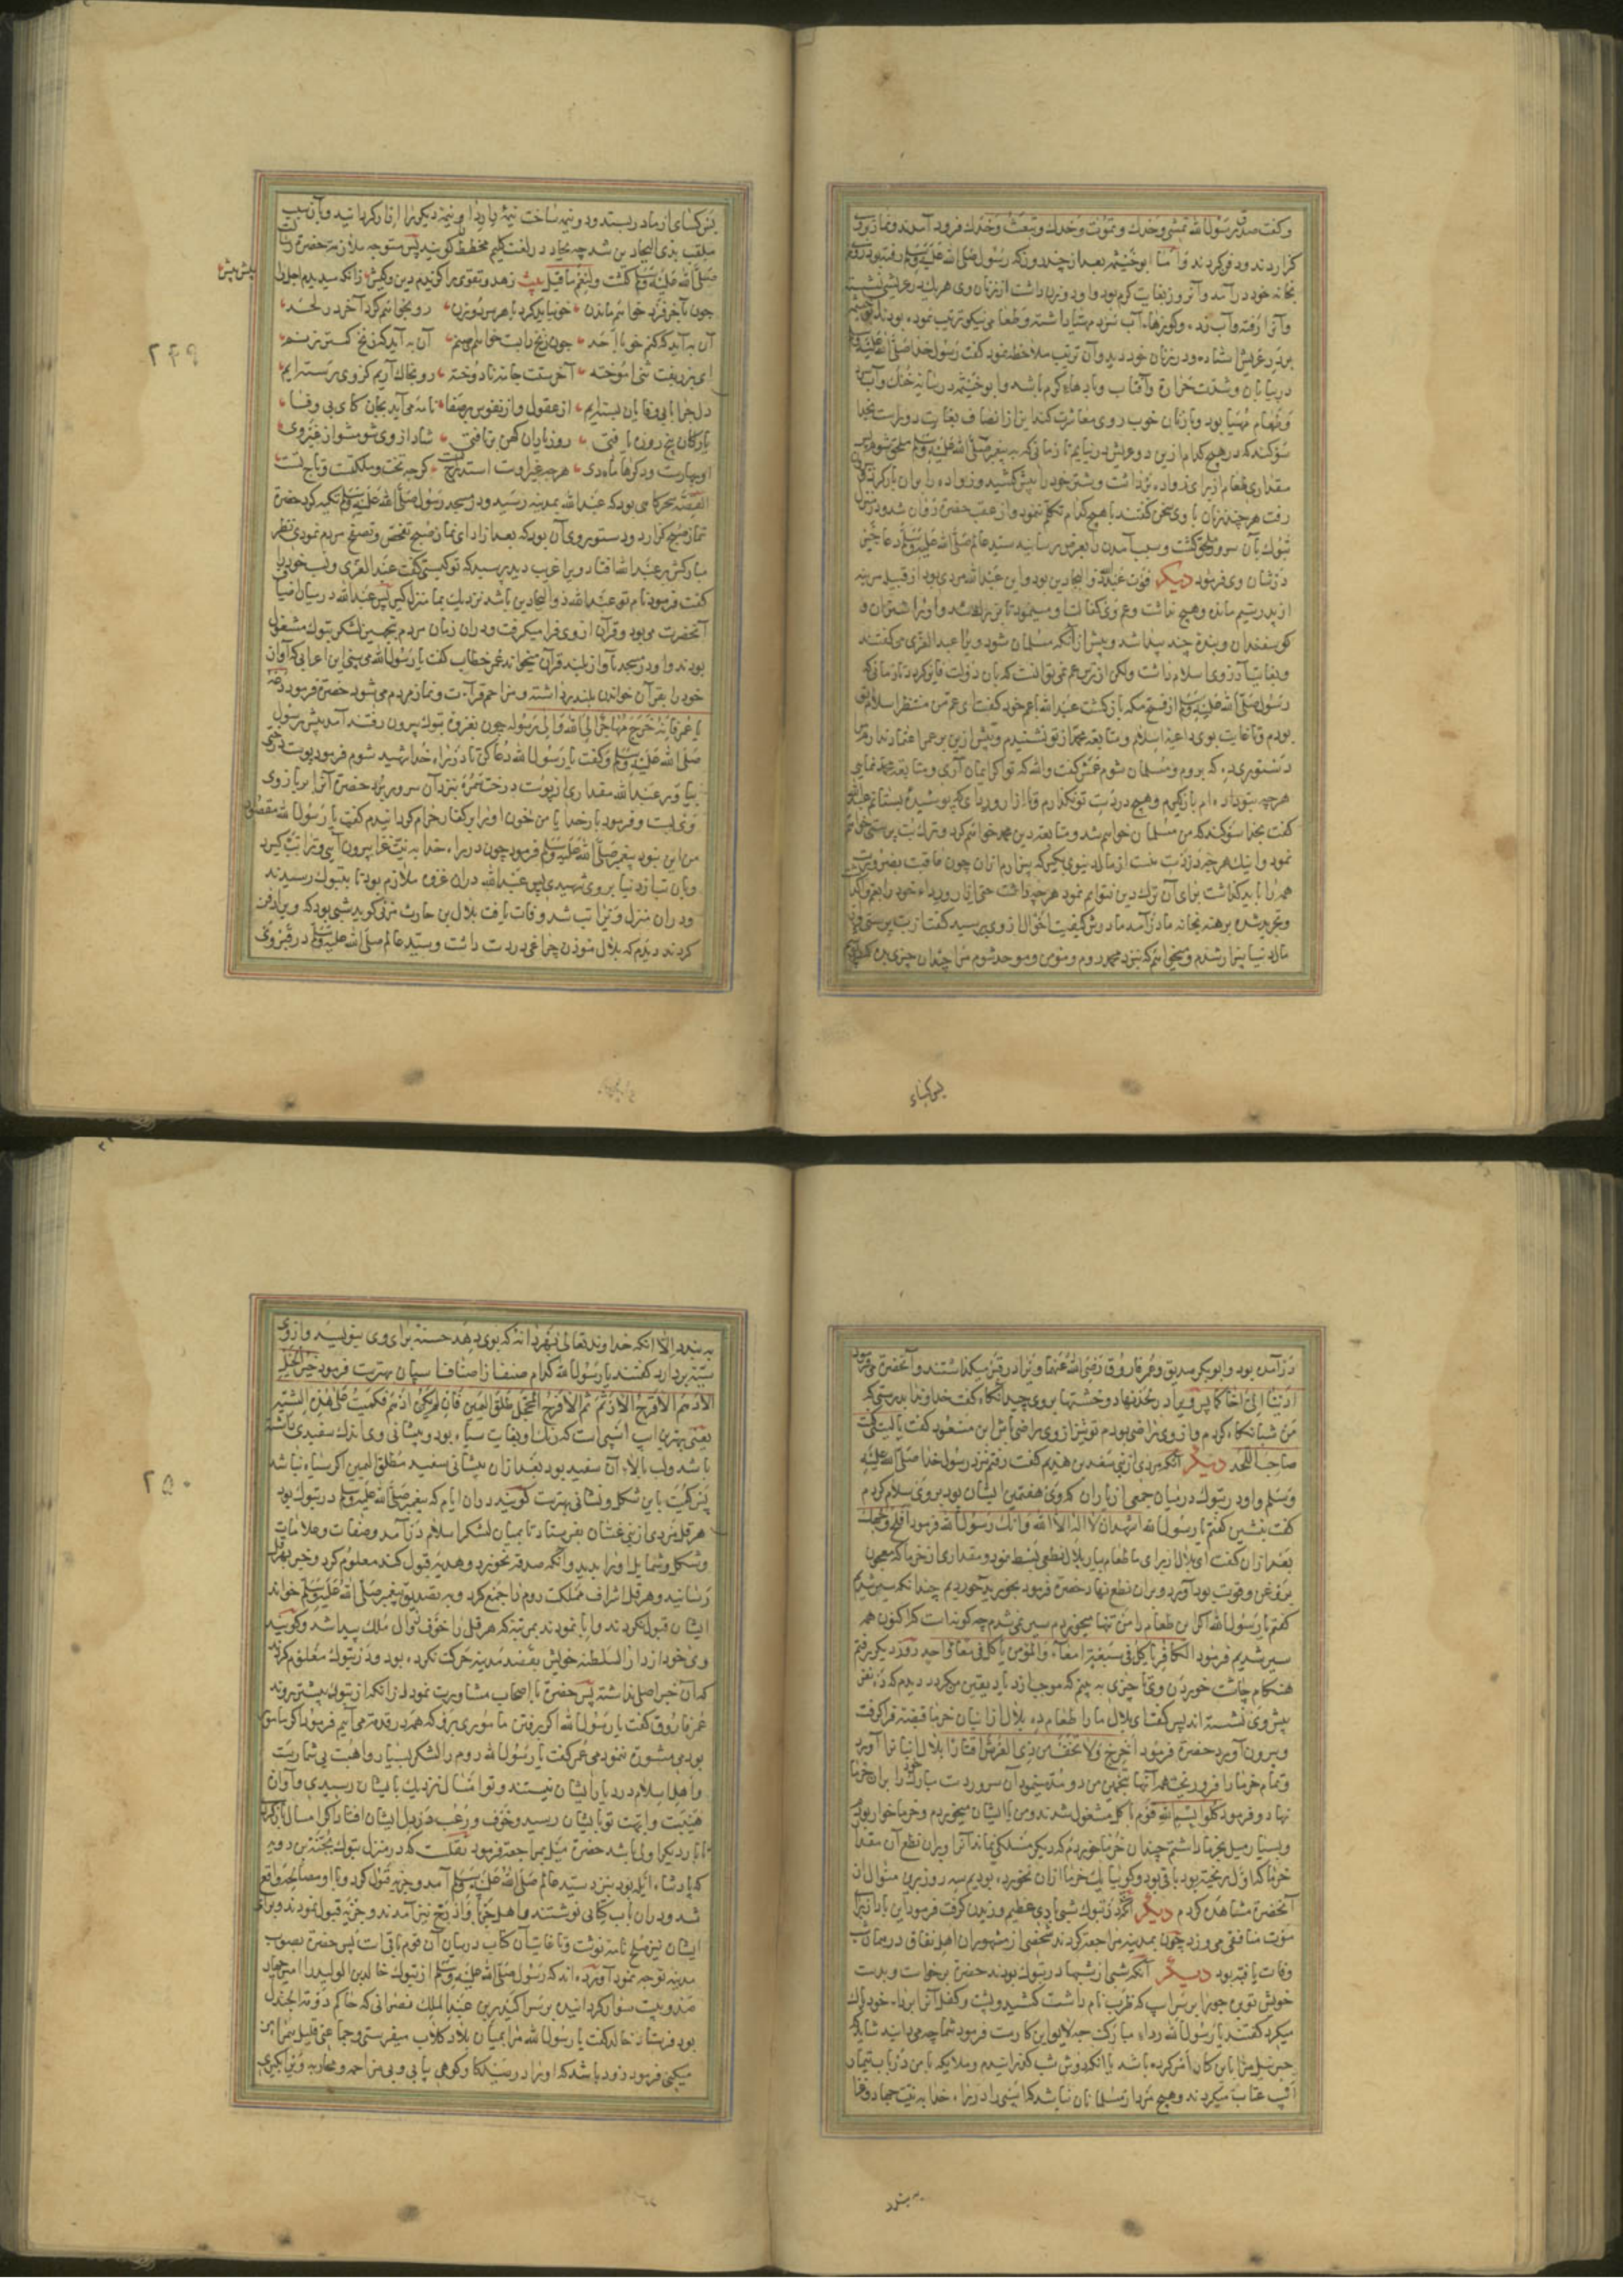 و گفت صدق رسول الله تمشی وحدك و تموت وحدك و تبعث وحدك فرود آمدند و نماز بروی
كزاردند و دفن كردند و اما ابو خیثمه بعد از چند روز كه رسول صلی الله علیه وسلم رفته بود روزی
بخانه خود در آمد و آنروز بغایت كرم بود و او دو زن داشت از زنان وی هر یك در عریشی نشسته
و آنرا رفته و آب زده و كوزها آب سرد مهیا داشته و طعامی نیكو ترتیب نموده بودند ابو خیثمه
بر در عریش استاده و در زنان خود دید و آن ترتیب ملاحظه نمود گفت رسول خدا صلی الله علیه وسلم
در بیابان و شدت حرارة و آفتاب و بادهاء كرم باشد و ابو خیثمه در سایه خنك و آب
و طعام مهیا بود و با زنان خوب روی معاشرت كند این از انصاف بغایت دور است بخدا
سوكند كه در هیچ كدام ازین دو عریش در نیایم تا زمانی كه به پیغمبر صلی الله علیه وسلم ملحق شوم پس
مقداری طعام از برای زواده برداشت و شتر خود را پیش كشید و زواده را بر آن بار كرد
رفت هر چند زنان با وی سخن گفتند با هیچ كدام تكلم ننمود و از عقب حضرت روان شد و در منزل
تبوك بآن سرور ملحق گشت و سبب آمدن را بعرض رسانید سید عالم صلی الله علیه وسلم دعا خیر
در شان وی فرمود دیكر فوت عبد الله ذو البجادین بود و این عبد الله مردی بود از قبیله مزینه
از پدر یتیم مانده و هیچ نداشت و عم وی كفالت او مینمود تا بزرك شد و او را شتران و
كوسفندان و بندۀ چند پیدا شد و پیش از آنكه مسلمان شود ویرا عبد العزی می گفتند
و بغایت آرزوی اسلام داشت ولكن از ترس عم نمی توانست كه بآن دولت فایز كردد تا زمانی كه
رسول صلی الله علیه وسلم از فتح مكه باز كشت عبد الله با عم خود گفت ای عم من منتظر اسلام تو
بودم و تا غایت بوی داعیه اسلام و متابعه محمد از تو نشنیدم و بیش ازین بر عمر اعتماد ندارم
دستوری ده كه بروم و مسلمان شوم عمش گفت والله كه تو اكر ایمان آری و متابعه محمد نمایی
هر چه بتو داده ام باز كیرم و هیچ در دست تو نكذارم تا ازار و ردای كه پوشیدۀ بستانم عبد الله
گفت بخدا سوكند كه من مسلمان خواهم شد و متابعه دین محمد خواهم كرد و ترك بت پرستی خواهم
نمود و اینك هر چه در دست منست از مال دنیوی بكیر كه بیزارم از آن چون عاقبت بضرورت
همه را باید گذاشت برای آن ترك دین نتوانم نمود هر چه داشت حتی ازار و رداء خود را بعم وا كذاشت
و تجرید شده برهنه بخانه مادر آمد مادرش كیفیت احوال از وی پرسید گفت از بت پرستی و
مال دنیا بیزار شدم و میخواهم كه بنزد محمد روم و مؤمن و موحد شوم مرا چندان چیزی بده كه
پس كساء
پس كسای از مادر بستد و دو نیمه ساخت نیمۀ را ردا و نیمۀ دیكر را ازار كردانید و بآن سبب
ملقب بذی البجادین شد چه بجاد در لغت گلیم مخطط را كویند پس متوجه ملازمت حضرت رسالت
صلی الله علیه وسلم كشت ولنعم ما قیل بیت زهد و تقوی را كزیدم دین و كیش زانكه سیدیدم اجل را پیش پیش
چون بآخر فرد خواهم ماندن خو نباید كرد با هر مرد و زن رو بخواهم كرد آخر در لحد
آن به آید كه كنم خو با احد چون زنخ را بست خواهند ای صنم آن به آید كه زنخ كمتر زنم
ای بزربفت ثنی آموخته آخرستت جامۀ نادوخته رو بخاك آریم كز وی رسته ایم
دل چرا با بی وفایان بسته ایم از عقول و از نفوس پر صفا نامه می آید بجان كای بی وفا
یاركان پنج روزه یافتی روز یاران كهن بر تافتی شاد از وی شو مشو از غیر وی
او بهارست و دكرها ماه دی هر چه غیر اوست استدراج تست كر چه تخت و ملكتست و تاج تست
القصه سحركاهی بود كه عبد الله بمدینه رسید و در مسجد رسول صلی الله علیه وسلم تكیه كرد حضرت
نماز صبح كزارد و دستور وی آن بود كه بعد از ادای نماز صبح تفحص و تصفح مردم نمودی نظر
مباركش بر عبد الله افتاد ویرا غریب دید پرسید كه تو كیستی گفت عبد العزی و نسب خود را
گفت فرمود نام تو عبد الله ذو البجادین باشد نزدیك بما منزل كیر پس عبد الله در میان اضیاف
آنحضرت می بود و قرآن از وی فرا میكرفت و در آن زمان مردم بتجهیز لشكر تبوك مشغول
بودند و او در مسجد بآواز بلند قرآن میخواند عمر خطاب گفت یا رسول الله می بینی این اعرابی كه آواز
خود را بقرآن خواندن بلند برداشته و مزاحم قرآءت و نماز مردم می شود حضرت فرمود دعه
یا عمر فانه خرج مهاجرا الی الله و الی رسوله چون بغزوۀ تبوك بیرون رفتند آمد پیش رسول
صلی الله علیه وسلم و گفت یا رسول الله دعا كن تا در راه خدا شهید شوم فرمود پوست درختی
بیاور عبد الله مقداری از پوست درخت سمره بنزد آن سرور برد حضرت آنرا بر بازوی
وی بست و فرمود بار خدایا من خون او را بر كفار حرام كردانیدم گفت یا رسول الله مقصود
من این نبود پیغمبر صلی الله علیه وسلم فرمود چون در راه خدا به نیت غزا بیرون آیی و ترا تب كیرد
و بآن تب از دنیا بروی شهیدی پس عبد الله در آن غزوه ملازم بود تا بتبوك رسیدند
و در آن منزل ویرا تب شد و وفات یافت بلال بن حارث مزنی كوید شبی بود كه ویرا دفن
كردند دیدم كه بلال مؤذن چراغی در دست داشت و سید عالم صلی الله علیه وسلم در قبر وی
پیش پیش
۲۴۹
در آمده بود و ابو بكر صدیق و عمر فاروق رضی الله عنهما ویرا در قبر میكذاشتند و آنحضرت می فرمود
ادنیا الی اخاكما پس ویرا در لحد نهاد و خشتها بر وی چید آنكاه گفت خداوندا بدرستی كه
من شبانكاه كردم و از وی راضی بودم تو نیز از وی راضی باش ابن مسعود گفت یا لیتنی كنت
صاحب اللحد دیكر آنكه مردی از بنی سعد بن هذیم گفت رفتم نزد رسول خدا صلی الله علیه
وسلم و او در تبوك در میان جمعی از یاران كه وی هفتمین ایشان بود بر وی سلام كردم
گفت بنشین گفتم یا رسول الله اشهد ان لا اله الا الله و انك رسول الله فرمود افلح وجهك
بعد از آن گفت ای بلال از برای ما طعام بیار بلال نطعی بسط نمود و مقداری از خرما كه معجون
بروغن و قروت بود آورد و بر آن نطع نهاد حضرت فرمود بخورید خوردیم چندانكه سیر شدیم
گفتم یا رسول الله اكر این طعام را من تنها میخوردم سیر نمی شدم چه كونه است كه اكنون همه
سیر شدیم فرمود الكافر یاكل فی سبعة امعاء و المؤمن یاكل فی معاء واحد روز دیكر رفتم
هنكام چاشت خوردن وی تا چیزی به بینم كه موجب ازدیاد یقین من كردد دیدم كه ده نفر
پیش وی نشسته اند پس گفت ای بلال ما را طعام ده بلال از انبان خرما قبضه قبضه فرا كرفت
و بیرون آورد حضرت فرمود اخرج و لا تخف من ذی العرش اقتارا بلال انبانرا آورد
و تمام خرما را فرو ریخت همه آنها بتخمین من دو مد مینمود آن سرور دست مبارك خود را بر آن خرما
نهاد و فرمود كلوا بسم الله قوم باكل مشغول شدند و من با ایشان میخوردم و خرما خوار بودم
و بسیار میل بخرما داشتم چندان خرما خوردم كه دیكر مسلكی نماند آنرا و بر آن نطع آن مقدار
خرما كه اول ریخته بود باقی بود و كوییا یك خرما از آن نخورده بودیم سه روز برین منوال از
آنحضرت مشاهده كردم دیكر آنكه در تبوك شبی بادی عظیم وزیدن كرفت فرمود این باد از برای
موت منافقی می وزد چون بمدینه مراجعه كردند شخصی از مشهوران اهل نفاق در همان شب
وفات یافته بود دیكر آنكه شبی از شبها در تبوك بودند حضرت برخاست و بدست
خویش توبره جو را بر سر اسپ كه ظرب نام داشت كشید و پشت و كفل آنرا برداء خود پاك
میكرد گفتند یا رسول الله رداء مبارك چه لایق این كارست فرمود شما چه می دانید شاید كه
جبرئیل مرا باین كار امر كرده باشد با آنكه دوش شب كذرانیدم و ملایكه با من در باب تیمار
اسپ عتاب میكردند و هیچ مرد از مسلمانان نباشد كه اسپی را در راه خدا به نیت جهاد و غزا
به بندد
به بندد الا آنكه خداوند تعالی بهر دانۀ كه بوی دهد حسنۀ برای وی بنویسد و از وی
سیئه بر دارد گفتند یا رسول الله كدام صنف از اصناف اسپان بهترست فرمود خیر الخیل
الادهم الاقرح الارثم ثم الاقرح المحجل طلق الیمین فان لم یكن ادهم فكمیت علی هذه الشیة
یعنی بهترین اسپ اسپی است كه رنك او بغایت سیاه بود و پیشانی وی اندك سفیدی داشته
باشد و لب بالاء آن سفید بود بعد از آن پیشانی سفید مطلق الیمین اكر سیاه نباشد
پس كمیت باین شكل و نشانی بهترست كویند در آن ایام كه پیغمبر صلی الله علیه وسلم در تبوك بود
هرقل مردی از بنی غسان بفرستاد تا بمیان لشكر اسلام در آمد و صفات و علامات
و شكل و شمایل او را بدید و آنكه صدقه نخورد و هدیه قبول كند معلوم كرد و خبر بهرقل
رسانید و هرقل اشراف مملكت روم را جمع كرد و به تصدیق پیغمبر صلی الله علیه وسلم خواند
ایشان قبول نكردند و ابا نمودند بمرتبۀ كه هرقل را خوف زوال ملك پیدا شد و كویند
وی خود از دار السلطنه خویش بقصد مدینه حركت نكرده بود و در تبوك معلوم كردند
كه آن خبر اصلی نداشته پس حضرت با اصحاب مشاورت نمود در آنكه از تبوك پیشتر روند
عمر فاروق گفت یا رسول الله اكر برفتن ماموری برو كه همه در قدمت می آییم فرمود اكر مامور
بودمی مشورت ننمودمی عمر گفت یا رسول الله روم را لشكر بسیار و اهبت بی شمارست
و اهل اسلام در دیار ایشان نیستند و تو امسال نزدیك بایشان رسیدی و آوازۀ
هیبت و ابهت تو بایشان رسید و خوف و رعب در دل ایشان افتاد اكر امسال باز كردی
تا بار دیكر اولی باشد حضرت میل بمراجعه فرمود نقلست كه در منزل تبوك یحنة بن رؤبه
كه پادشاه ایله بود بنزد سید عالم صلی الله علیه وسلم آمد و جزیه قبول كرد و با او مصالحه واقع
شد و در آن باب كتابی نوشتند و اهل جربا و اذرح نیز آمدند و جزیه قبول نمودند و برای
ایشان نیز صلح نامه نوشت و تا غایت آن كتاب در میان آن قوم باقی است پس حضرت بصوب
مدینه توجه نمود آورده اند كه رسول صلی الله علیه وسلم از تبوك خالد بن الولید را امیر چهار
صد و بیست سوار كردانیده بر سر اكیدر بن عبد الملك نصرانی كه حاكم دومة الجندل
بود فرستاد خالد گفت یا رسول الله مرا بمیان بلاد كلاب میفرستی و جماعتی قلیل همراه من
میكنی فرمود زود باشد كه او را در صید كاو كوهی یابی و بی مزاحمه و محاربه ویرا بكیری
۲۵۰